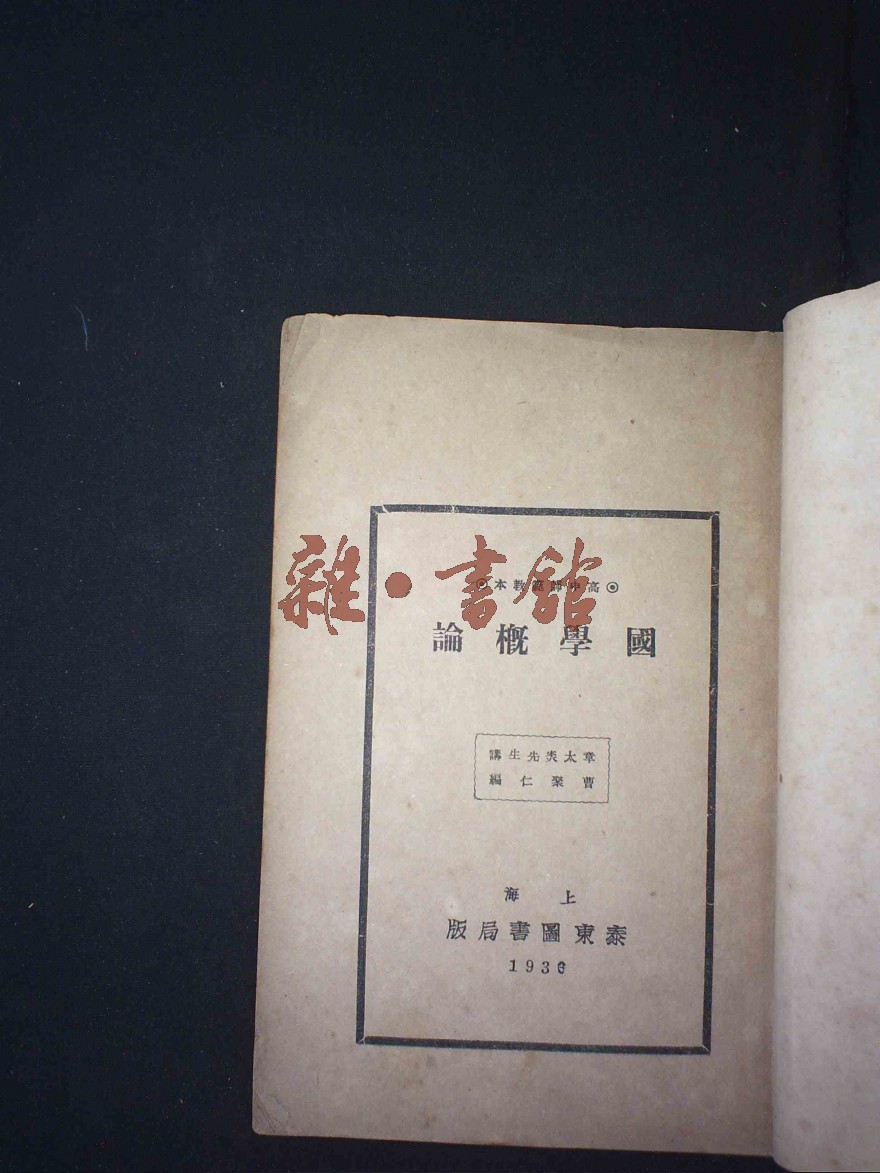 雜·書館
◎高中師範教本◎
國學概論
章太炎先生講
曹聚仁編
上海
泰東圖書局版
1936